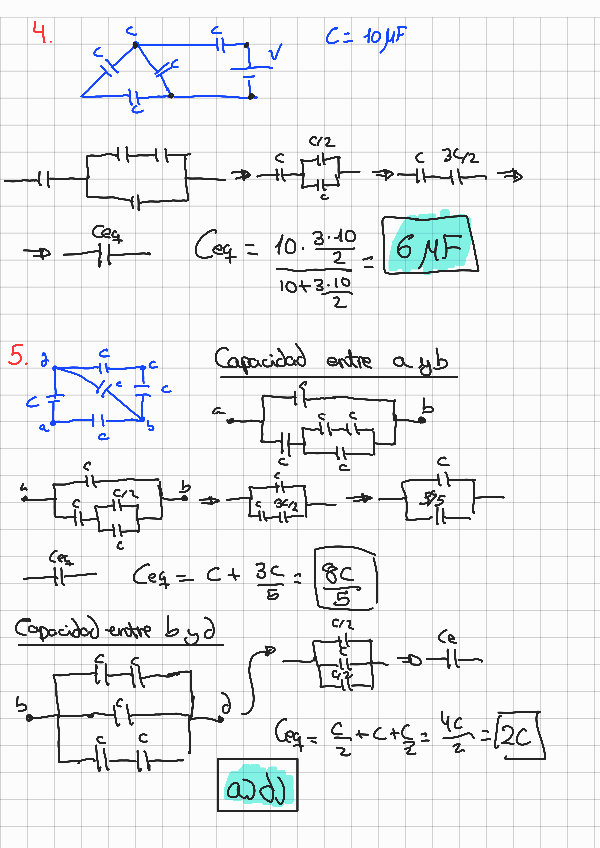 4.
C
C
C
C
C
V
C = 10 μF
C/2
C
C
⇒
C 3C/2
⇒
⇒
Ceq
Ceq = 10 · 3·10/2 / 10+3·10/2 = 6 μF
5.
d C c
C
C
C
a C b
Capacidad entre a y b
a
C
b
C
C C
C
a
C
b
C
C/2
C
⇒
C
C 3C/2
⇒
C
Ceq
Ceq = C + 3C/5 = 8C/5
Capacidad entre b y d
b
C C
C
C C
d
C/2
C
C/2
⇒
Ce
Ceq = C/2 + C + C/2 = 4C/2 = 2C
a) d)